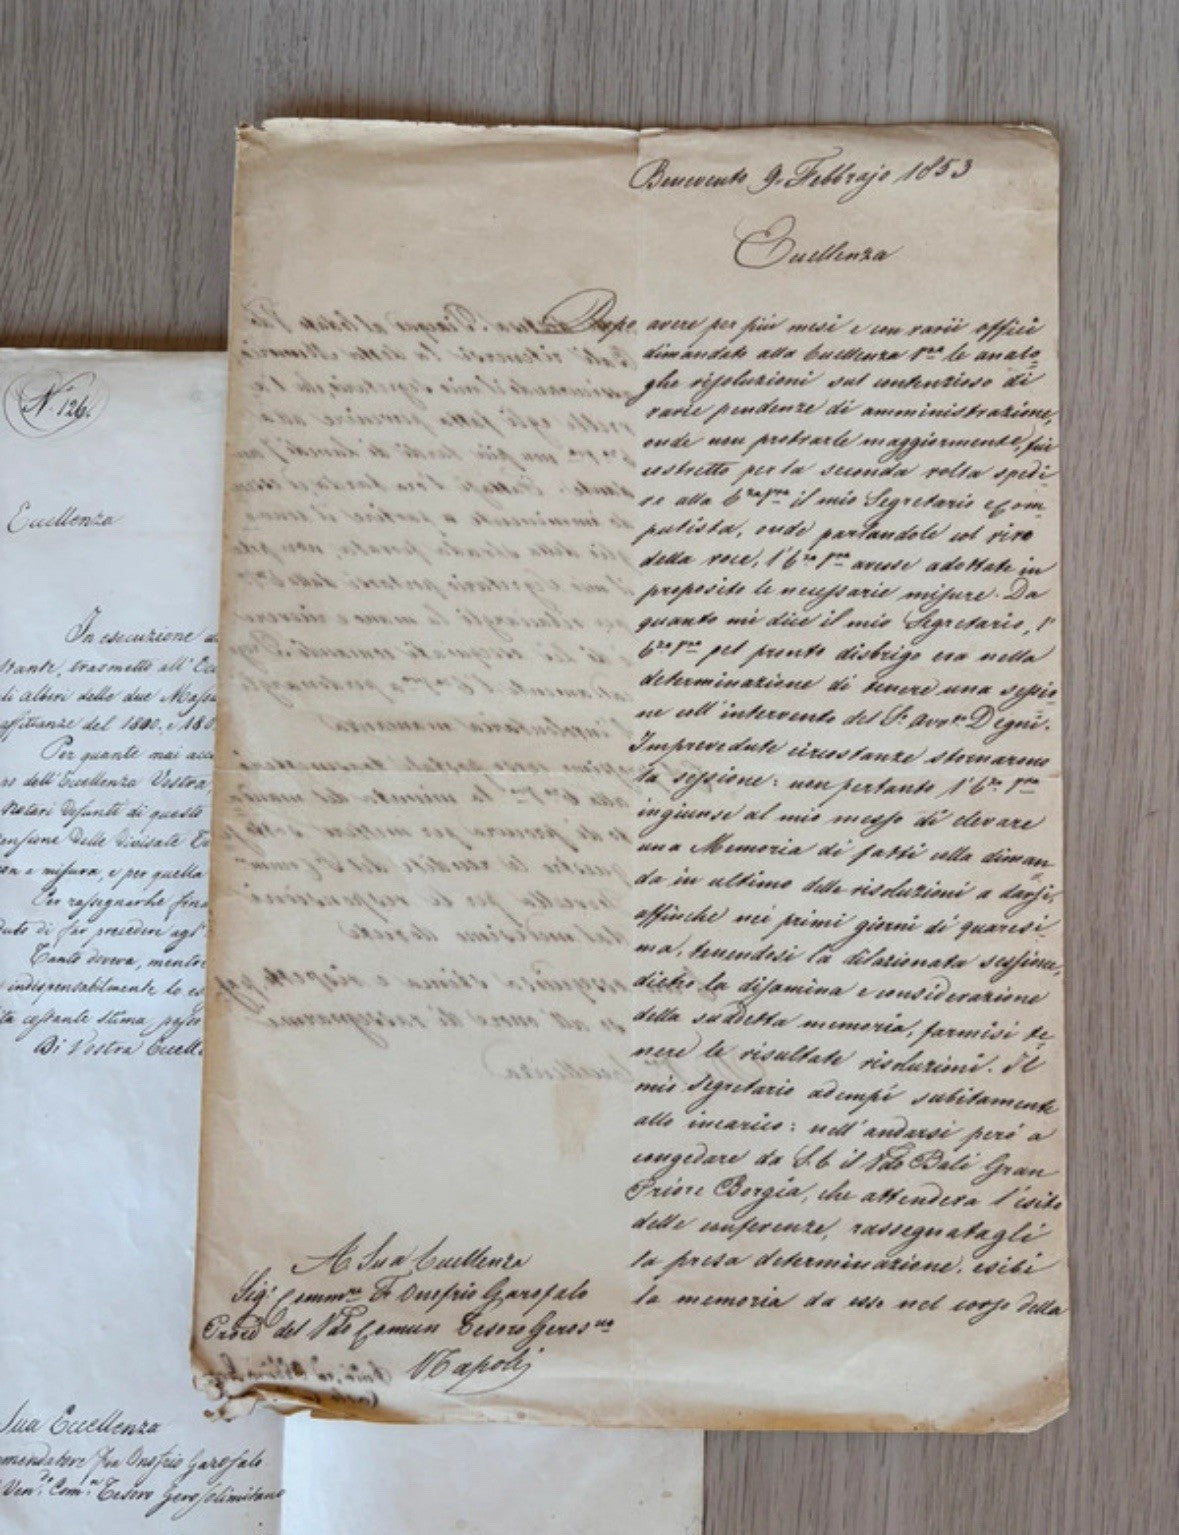 Benevento 9. Febbrajo 1853
Eccellenza
Dopo avere per più mesi e con varii offici
dimandato alla Eccellenza Vra le analo
ghe risoluzioni sul contenzioso di
varie pendenze di amministrazione,
onde non protrarle maggiormente, fui
costretto per la seconda volta spedi-
re alla Eza Vra il mio Segretario e Com-
putista, onde parlandole col vivo
della voce, l'Eza Vra avesse adottate in
proposito le necessarie misure. Da
quanto mi dice il mio Segretario, l'
Eza Vra pel pronto disbrigo era nella
determinazione di tenere una sessio
ne coll'intervento del Sr. Avvto Degni.
Imprevedute circostanze stornarono
la sessione: non pertanto l'Eza Vra
ingiunse al mio messo di elevare
una Memoria di fatti colla diman
da in ultimo delle risoluzioni a darsi,
affinchè nei primi giorni di quaresi-
ma, tenendosi la dilazionata sessione,
dietro la disamina e considerazione
della suddetta memoria, farmisi te-
nere le risultate risoluzioni. Il
mio Segretario adempì subitamente
allo incarico: nell'andarsi però a
congedare da S.E. il Vdo Balì Gran
Priore Borgia, che attendeva l'esito
delle conferenze, rassegnatagli
la presa determinazione, esibì
la memoria da esso nel corso della
A Sua Eccellenza
Sigr Commre Fr Onofrio Garofalo
del Vdo Comun Tesoro Geros.no
Napoli
N. 126.
Eccellenza
In esecuzione
stante, trasmetto all'
di alberi delle due
affittanze del 1800. e
Per quanto mai
dell'Eccellenza Vostra
defunti di questo
delle divisate
e misura, e per quella
Per rassegnarle
di far precedere
Tanto doveva, mentre
indispensabilmente lo
costante stima
Di Vostra
Sua Eccellenza
Fra Onofrio Garofalo
Vendo Comn Tesoro Gerosolimitano